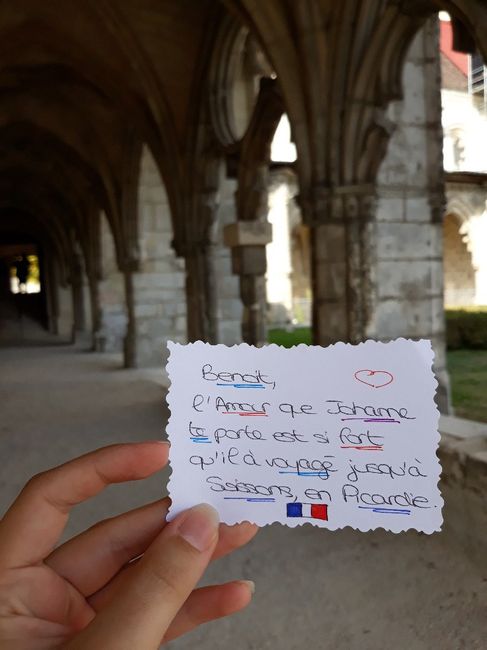 Benoit,
l'Amour que Johanne
te porte est si fort
qu'il a voyagé jusqu'à
Soissons, en Picardie.